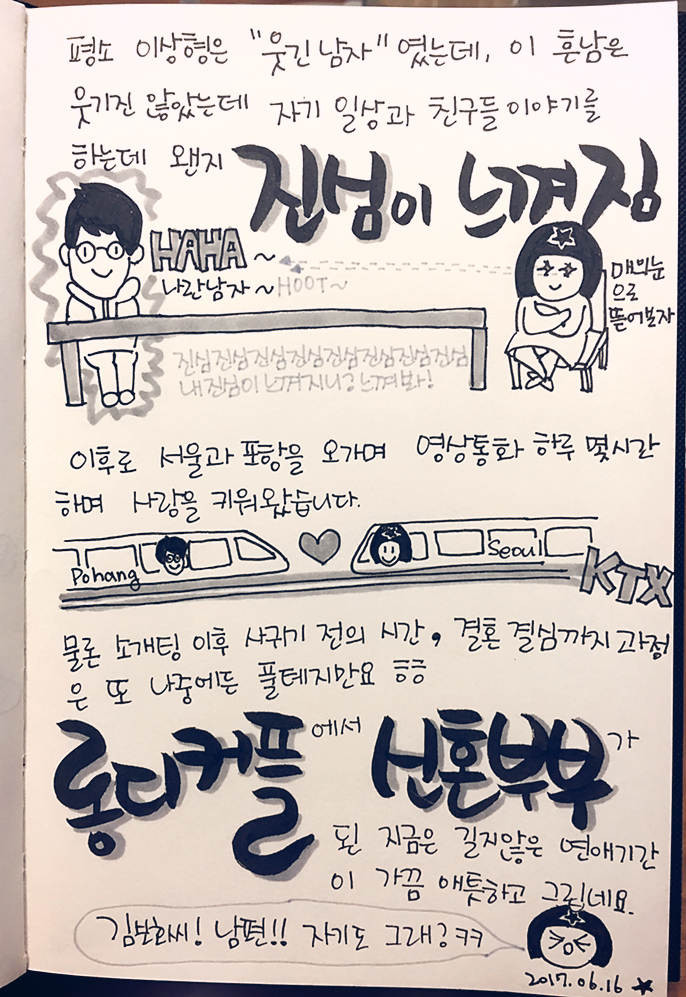 평소 이상형은 "웃긴 남자" 였는데, 이 훈남은
웃기진 않았는데 자기 일상과 친구들 이야기를
하는데 왠지 진심이 느껴짐
HAHA ~
나란남자 ~ HOOT~
매의눈
으로
뜯어보자
진심진심진심진심진심진심진심진심
내 진심이 느껴지니? 느껴봐!
이후로 서울과 포항을 오가며 영상통화 하루 몇시간
하며 사랑을 키워왔습니다.
Pohang
Seoul
KTX
물론 소개팅 이후 사귀기 전의 시간, 결혼 결심까지 과정
은 또 나중에든 풀테지만요 ㅎㅎ
롱디커플에서 신혼부부가
된 지금은 길지않은 연애기간
이 가끔 애틋하고 그립네요.
김보화씨! 남편!! 자기도 그래? ㅋㅋ
2017.06.16